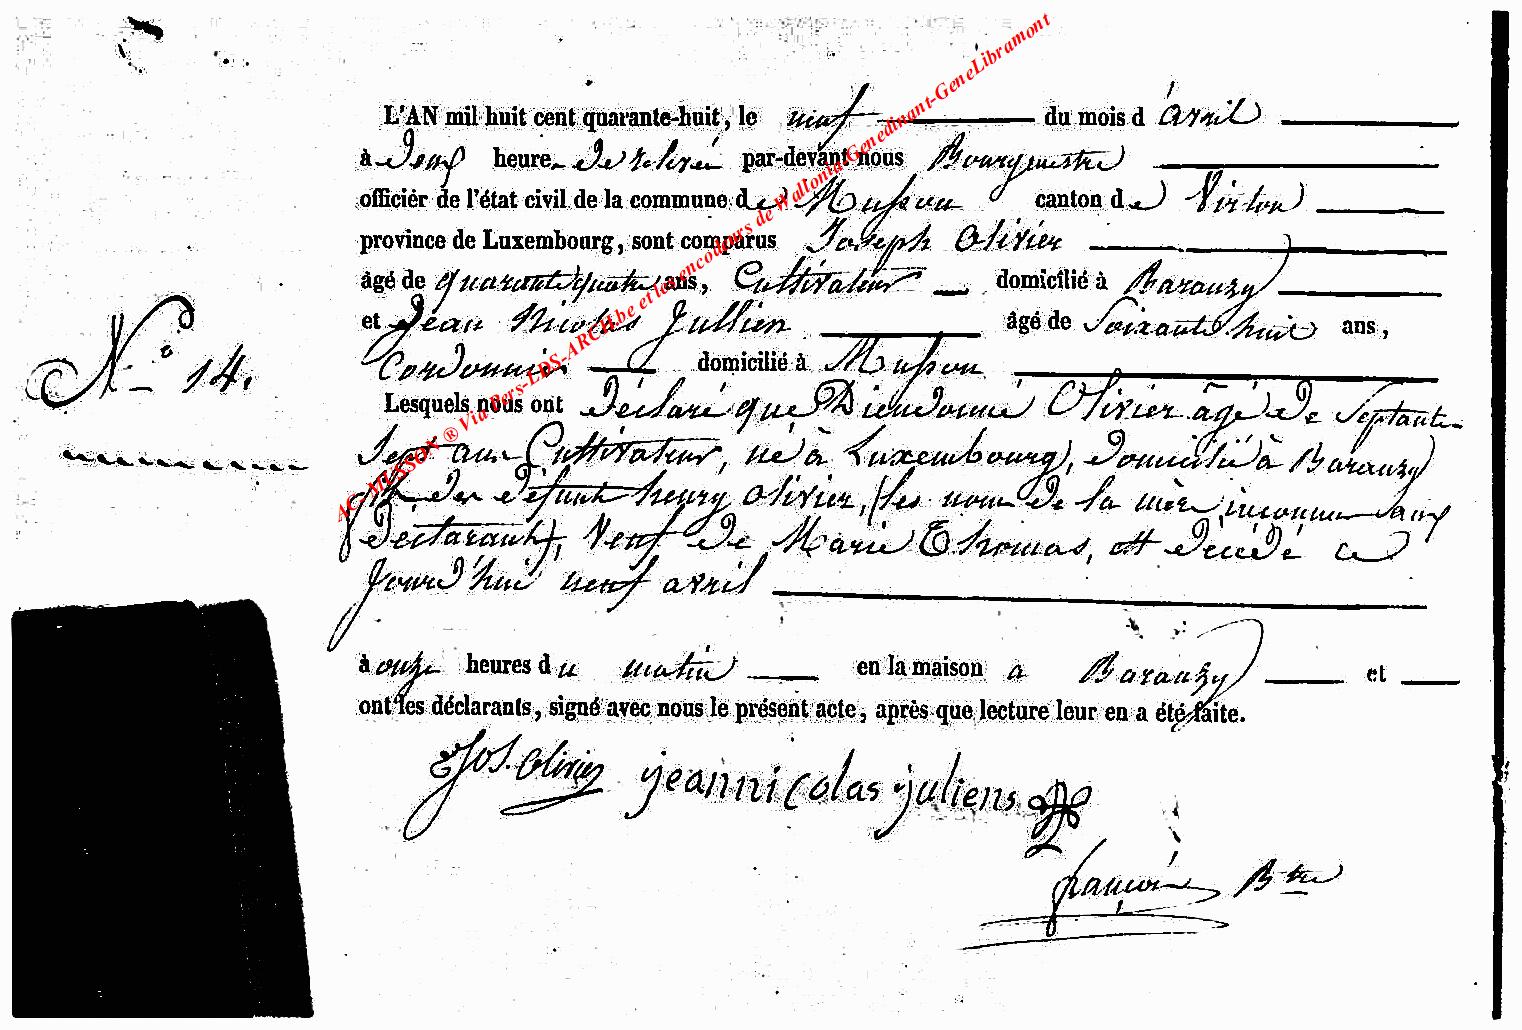 L'AN mil huit cent quarante-huit, le neuf du mois d'avril
à deux heures de relevée par-devant nous Bourgmestre
officier de l'état civil de la commune de Musson canton de Virton
province de Luxembourg, sont comparus Joseph Olivier
âgé de quarante quatre ans, Cultivateur domicilié à Baranzy
et Jean Nicolas Jullien âgé de Soixante huit ans,
Cordonnier domicilié à Musson
Lesquels nous ont déclaré que Dieudonné Olivier âgé de Septante
Sept ans Cultivateur, né à Luxembourg, domicilié à Baranzy
fils de défunt henry Olivier, (les nom de la mère inconnu aux
déclarants), Veuf de Marie Thomas, est décédé ce
jourd'hui neuf avril
à onze heures du matin en la maison a Baranzy et
ont les déclarants, signé avec nous le présent acte, après que lecture leur en a été faite.
N.° 14.
Jos. Olivier jeannicolas juliens
françois B tre
AC-MUSSON ® Via Pers-LDS-ARCH.be et les encodeurs de Wallonia-Genedinant-GeneLibramont